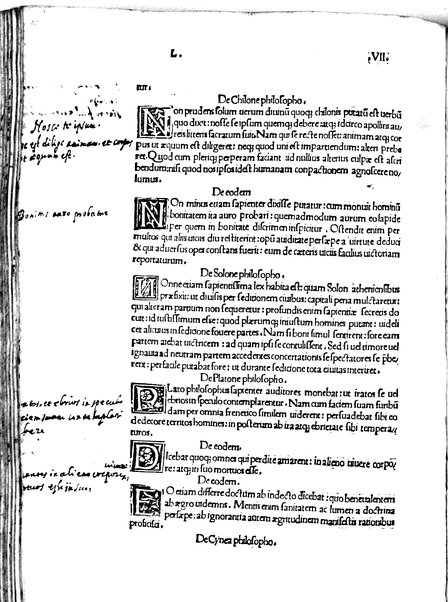 L.
.VII.
tur.
De Chilone philosopho.
Non prudens solum uerum diuinū quoqȝ chilonis putatū est uerbū
quo dixit: nosse se ipsum quemqȝ debere atqȝ idcirco apollini au/
reis litteris sacratum fuit. Nam qui se recte nosset: animam atqȝ cor
pus ut æquum est diligeret: neqȝ quod uni est impartiendum: alteri præbe
ret. Quod cum pleriqȝ perperam faciant id nullius alterius culpæ est ascri
bendum: nisi quod nos ipsos id est humanam conpactionem agnoscere no
lumus.
Nosce te ipsum
De eodem
Non minus etiam sapienter dixisse putatur: cum monuit hominū
bonitatem ita auro probari: quemadmodum aurum eo lapide
per quem in bonitate discrimen inspicitur. Ostendit enim per
multos qui alias utors diu reluxerint: opū auiditate persæpe a uirtute deduci
& qui aduersus opes constans fuerit: eum de cæteris uitiis facilius uictoriam
reportaturum.
Bonitas auro probatur
De Solone philosopho.
Non ne etiam sapientissima lex habita est: quam Solon atheniensibus
præfixit: ut diuisis per seditionem ciuibus: capitali pena mulctaretur:
qui alteram partium non sequeretur: profundis enim sapientiæ secretis do
cuit: id iustissimum esse: quod plærumqȝ iniustum homines putant: uidel
cet alicuius in seditione fouere partes. Nam si boni simul sentirent: fore eam
partem aiebat uictricem: ad quam ipsi se contulissent. Sed si uel timore uel
ignauia ad neutram partem accedentes concertationi se spectatores se præbe
rent: per facile putabat fore: ut durante seditione tota ciuitas interiret.
De Platone philosopho.
Plato philosophus sapienter auditores monebat: ut iratos se uel
ebrios in speculo contemplarentur. Nam cum faciem suam furibū
dam per omnia frenetico similem uiderent: persuadebat sibi eo
dedecore territos homines: in posterum ab ira atqȝ ebrietate sibi tempera/
turos.
De eodem.
Dicebat quoqȝ omnes qui perdite amarent: in alieno uiuere corpo/
re: atqȝ in suo mortuos esse.
De eodem.
Eo etiam differre doctum ab indocto dicebat: quo beneualentem
ab ægro uidemus. Mentis eram sanitatem ac lumen a doctrina
persæpe: ab ignorantia autem ægritudinem manifestis rationibus
proficisci.
De Cynea philosopho.